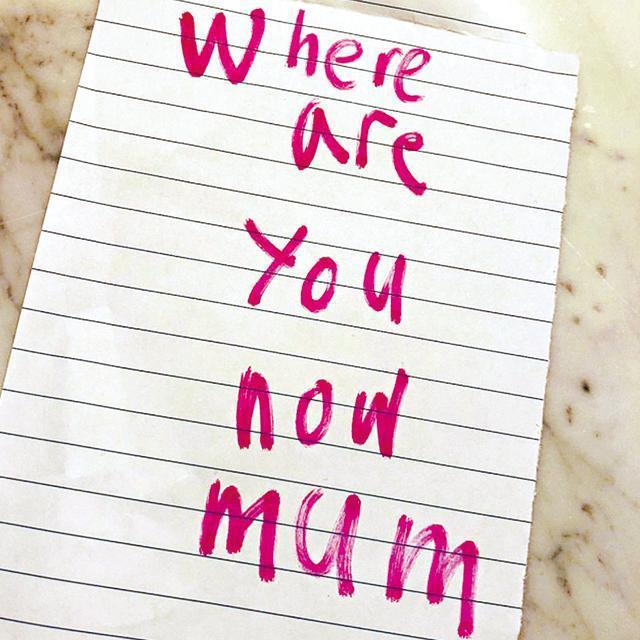 Where
are
You
now
mum